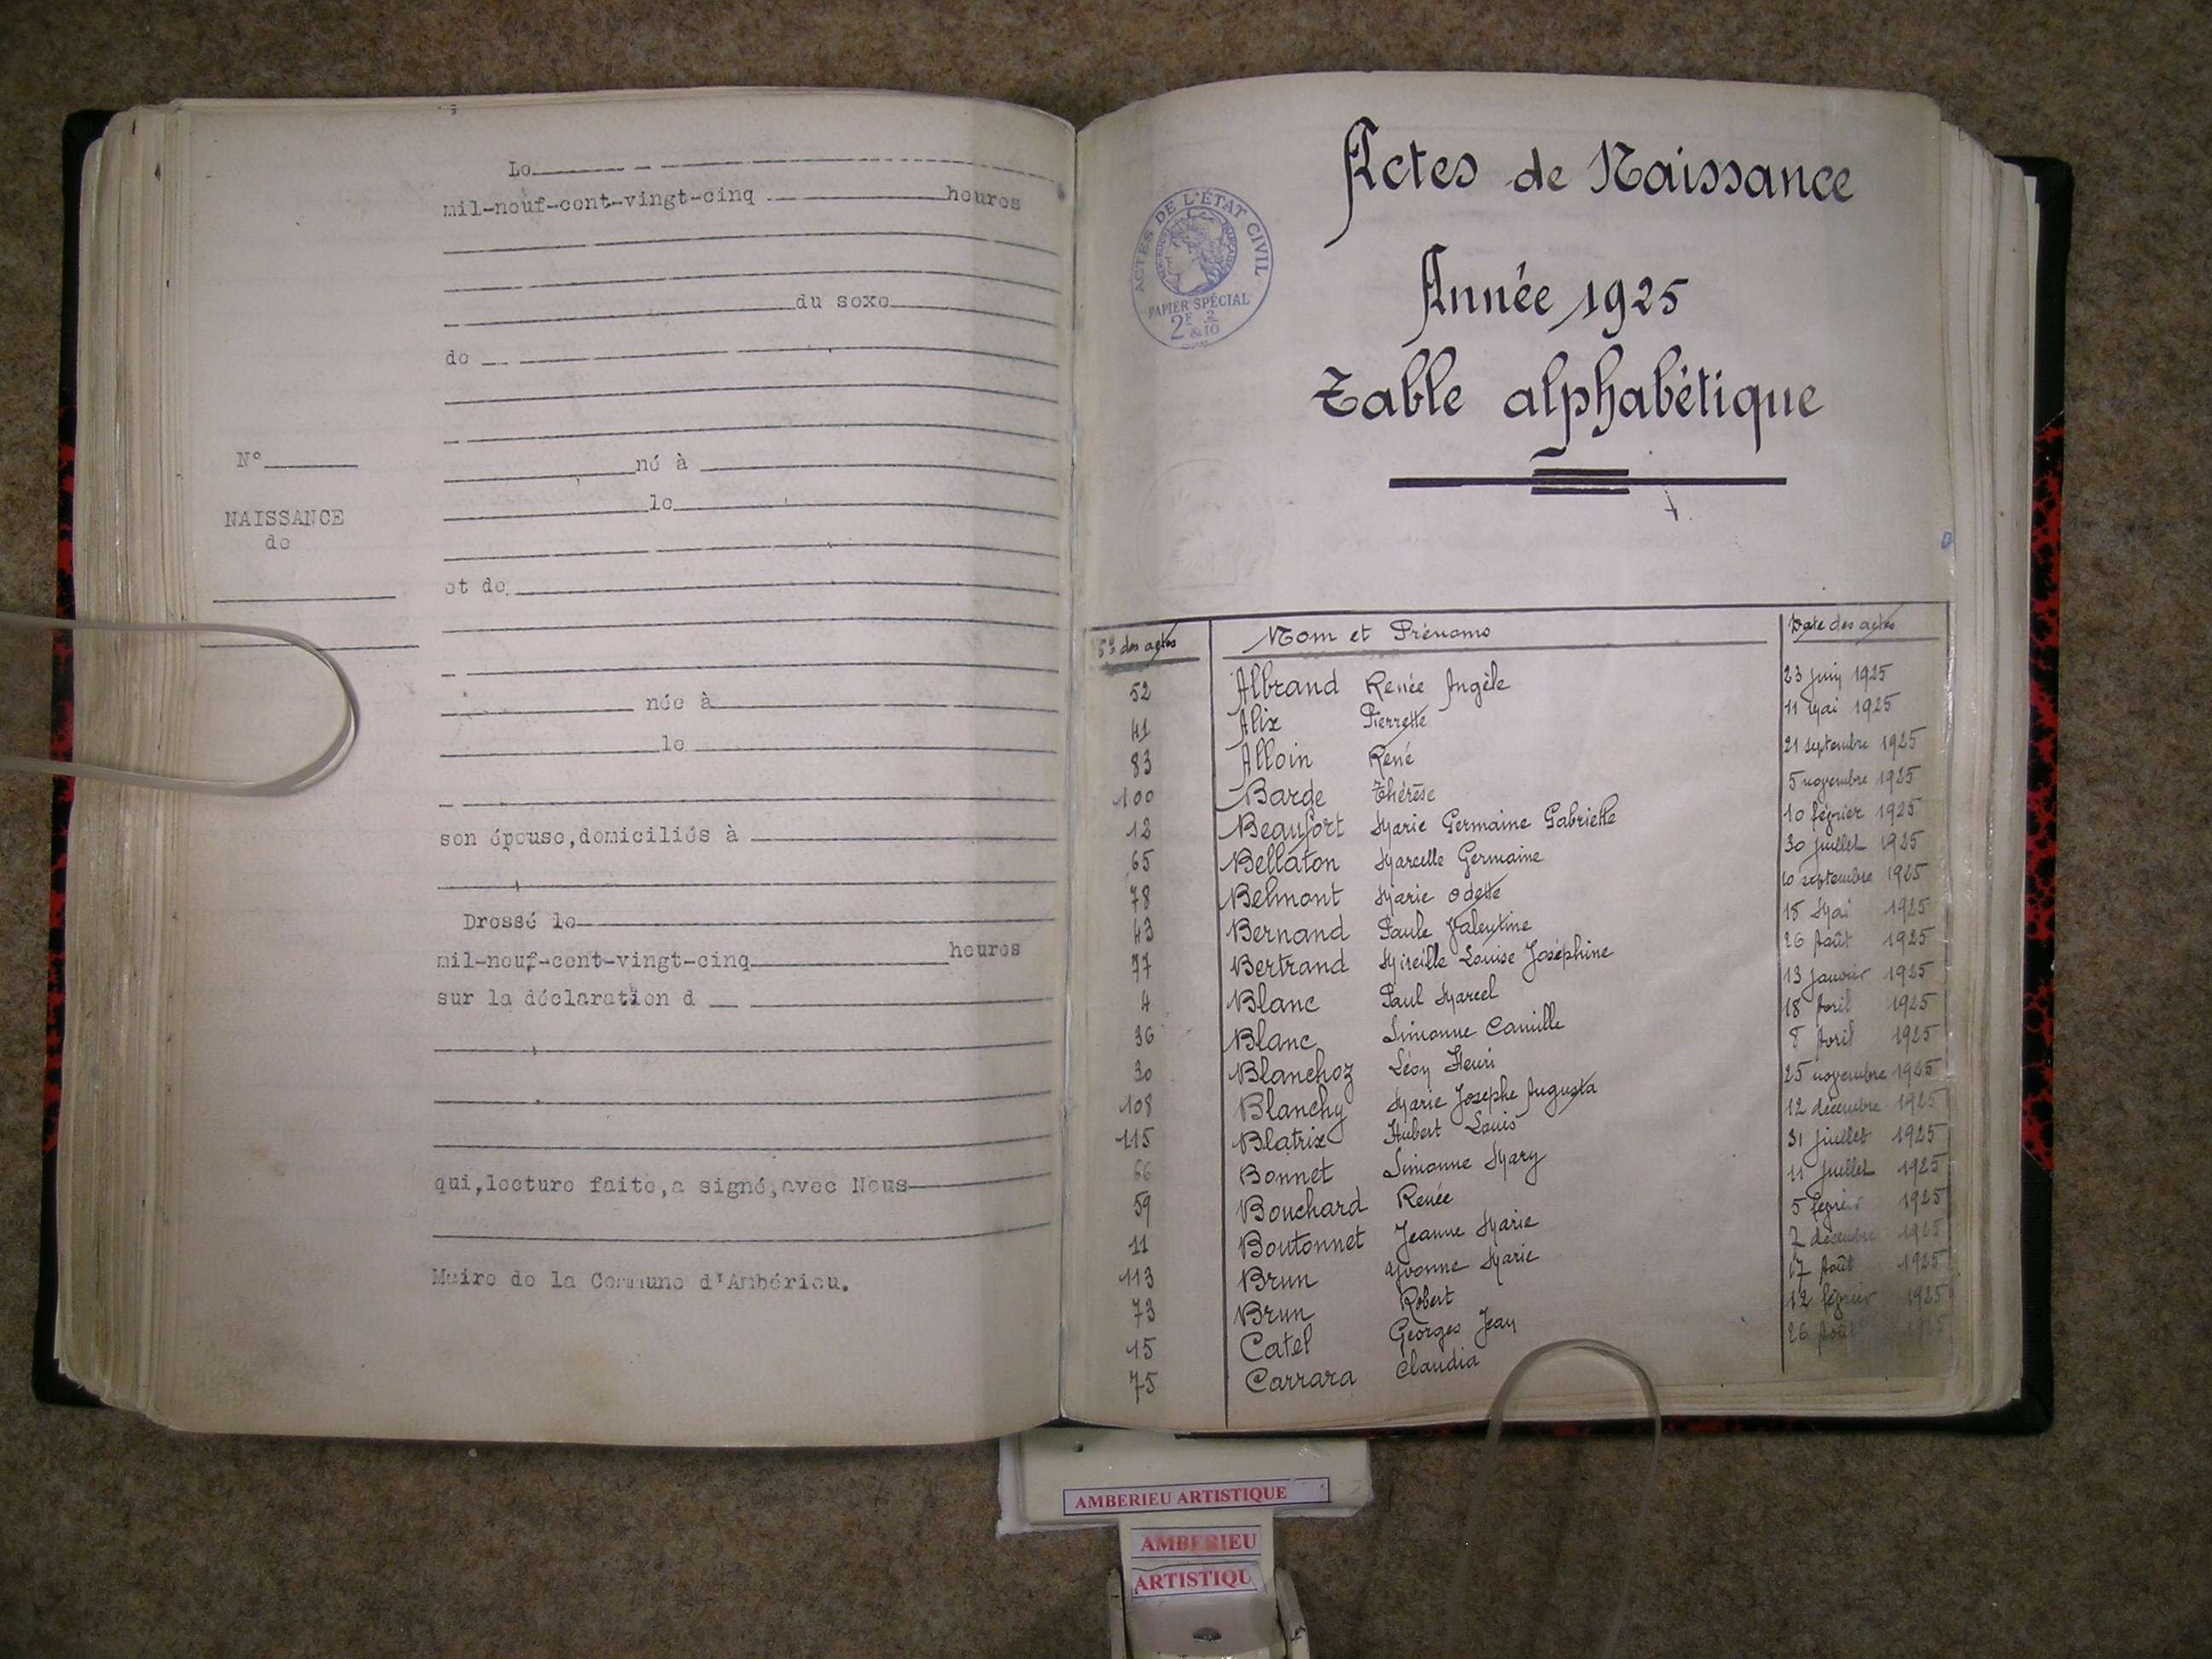 Le
mil-neuf-cent-vingt-cinq heures
du sexe
de
N°
né à
NAISSANCE
le
de
et de
née à
le
son épouse,domiciliés à
Dressé le
mil-neuf-cent-vingt-cinq heures
sur la déclaration d
qui,lecture faite,a signé,avec Nous
Maire de la Commune d'Ambérieu.
Actes de Naissance
ACTES DE L'ÉTAT CIVIL
PAPIER SPÉCIAL
2F & 2/10
Année 1925
Table alphabétique
Nos des actes Nom et Prénoms Date des actes
52 Albrand Renée Angèle 23 juin 1925
41 Alix Pierrette 11 mai 1925
83 Alloin René 21 septembre 1925
100 Barde Thérèse 5 novembre 1925
12 Beaufort Marie Germaine Gabrielle 10 février 1925
65 Bellaton Marcelle Germaine 30 juillet 1925
78 Belmont Marie Odette 10 septembre 1925
43 Bernand Paule Valentine 15 Mai 1925
77 Bertrand Mireille Louise Joséphine 26 Août 1925
4 Blanc Paul Marcel 13 janvier 1925
36 Blanc Simonne Camille 18 Avril 1925
30 Blanchoz Léon Henri 8 Avril 1925
108 Blanchy Marie Josephe Augusta 25 novembre 1925
115 Blatrix Hubert Louis 12 décembre 1925
66 Bonnet Simonne Mary 31 juillet 1925
59 Bouchard Renée 11 juillet 1925
11 Boutonnet Jeanne Marie 5 février 1925
113 Brun Yvonne Marie 7 décembre 1925
73 Brun Robert 17 Août 1925
15 Catel Georges Jean 12 février 1925
75 Carrara Claudia 26 Août 1925
AMBERIEU ARTISTIQUE
AMBERIEU
ARTISTIQU